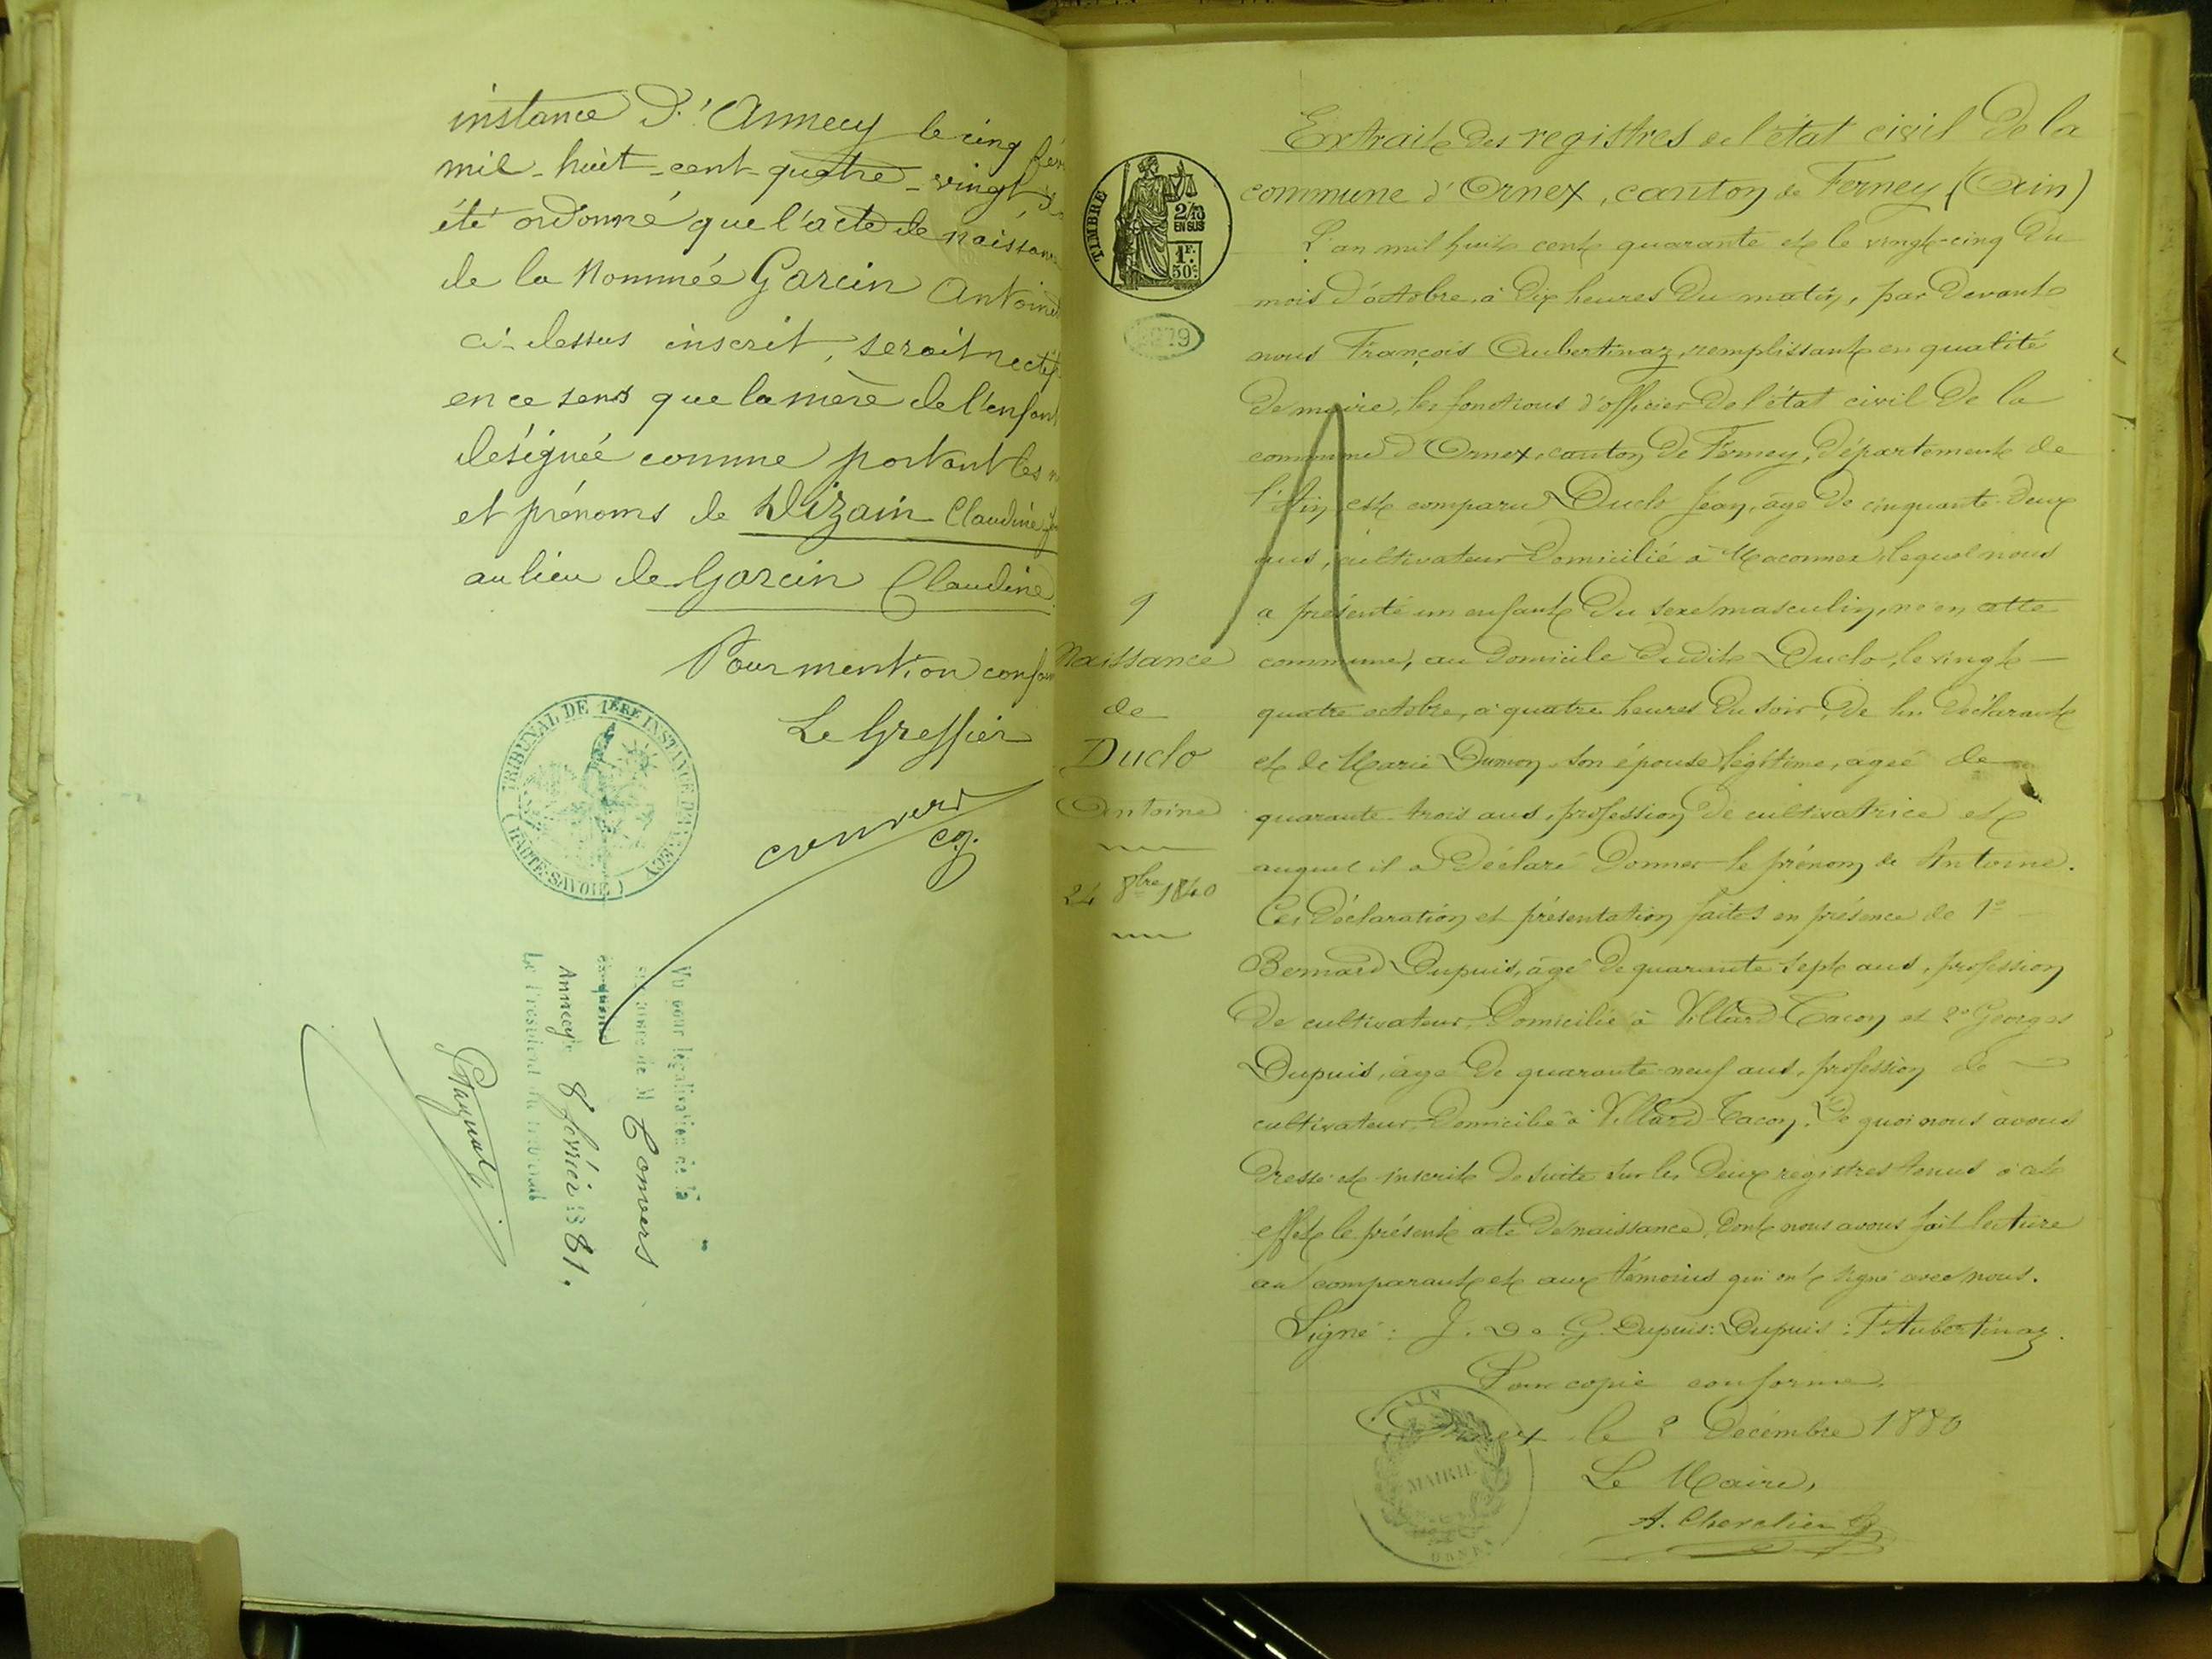 instance D'Annecy le cinq
mil-huit-cent-quatre-vingt
été ordonné que l'acte de naissan
de la Nommée Garcin Antoine
ci-dessus inscrit, serait rectif
en ce sens que la mère de l'enfant
désignée comme portant les
et prénoms de Dizain Claudine
au lieu de Garcin Claudine
Pour mention conf
Le Greffier
convers
cg.
TRIBUNAL DE 1ÈRE INSTANCE D'ANNECY
(HAUTE-SAVOIE)
Vu pour légalisation de la
de M Convers
Annecy 8 février 1881.
Le Président du tribunal
TIMBRE
2/10
EN SUS
1F.
50c.
279
Extrait des registres de l'état civil de la
commune d'Ornex, canton de Ferney (Ain)
L'an mil huit cent quarante et le vingt-cinq du
mois d'octobre, à dix heures du matin, par devant
nous François Aubertinaz, remplissant en qualité
de maire, les fonctions d'officier de l'état civil de la
commune d'Ornex, canton de Ferney, département de
l'Ain, est comparu Duclo Jean, âgé de cinquante-deux
ans, cultivateur domicilié à Maconnex, lequel nous
a présenté un enfant du sexe masculin, né en cette
commune, au domicile dudit Duclo, le vingt-
quatre octobre, à quatre heures du soir, de lui déclarant
et de Marie Dumon, son épouse légitime, agée de
quarante-trois ans, profession de cultivatrice et
auquel il a déclaré donner le prénom de Antoine.
Ces déclaration et présentation faites en présence de 1º
Bernard Dupuis, âgé de quarante-sept ans, profession
de cultivateur, domicilié à Villard-Tacon et 2º Georges
Dupuis, âgé de quarante-neuf ans, profession de
cultivateur, domicilié à Villard-Tacon. De quoi nous avons
dressé et inscrit de suite sur les deux registres tenus à cet
effet le présent acte de naissance, dont nous avons fait lecture
au comparant et aux témoins qui ont signé avec nous.
Signé : J. D. G. Dupuis : Dupuis : F. Aubertinaz.
Pour copie conforme,
Ornex le 2 Décembre 1880
Le Maire,
A. Chevalier
AIN
MAIRIE
ORNEX
9
Naissance
de
Duclo
Antoine
24 8bre 1840